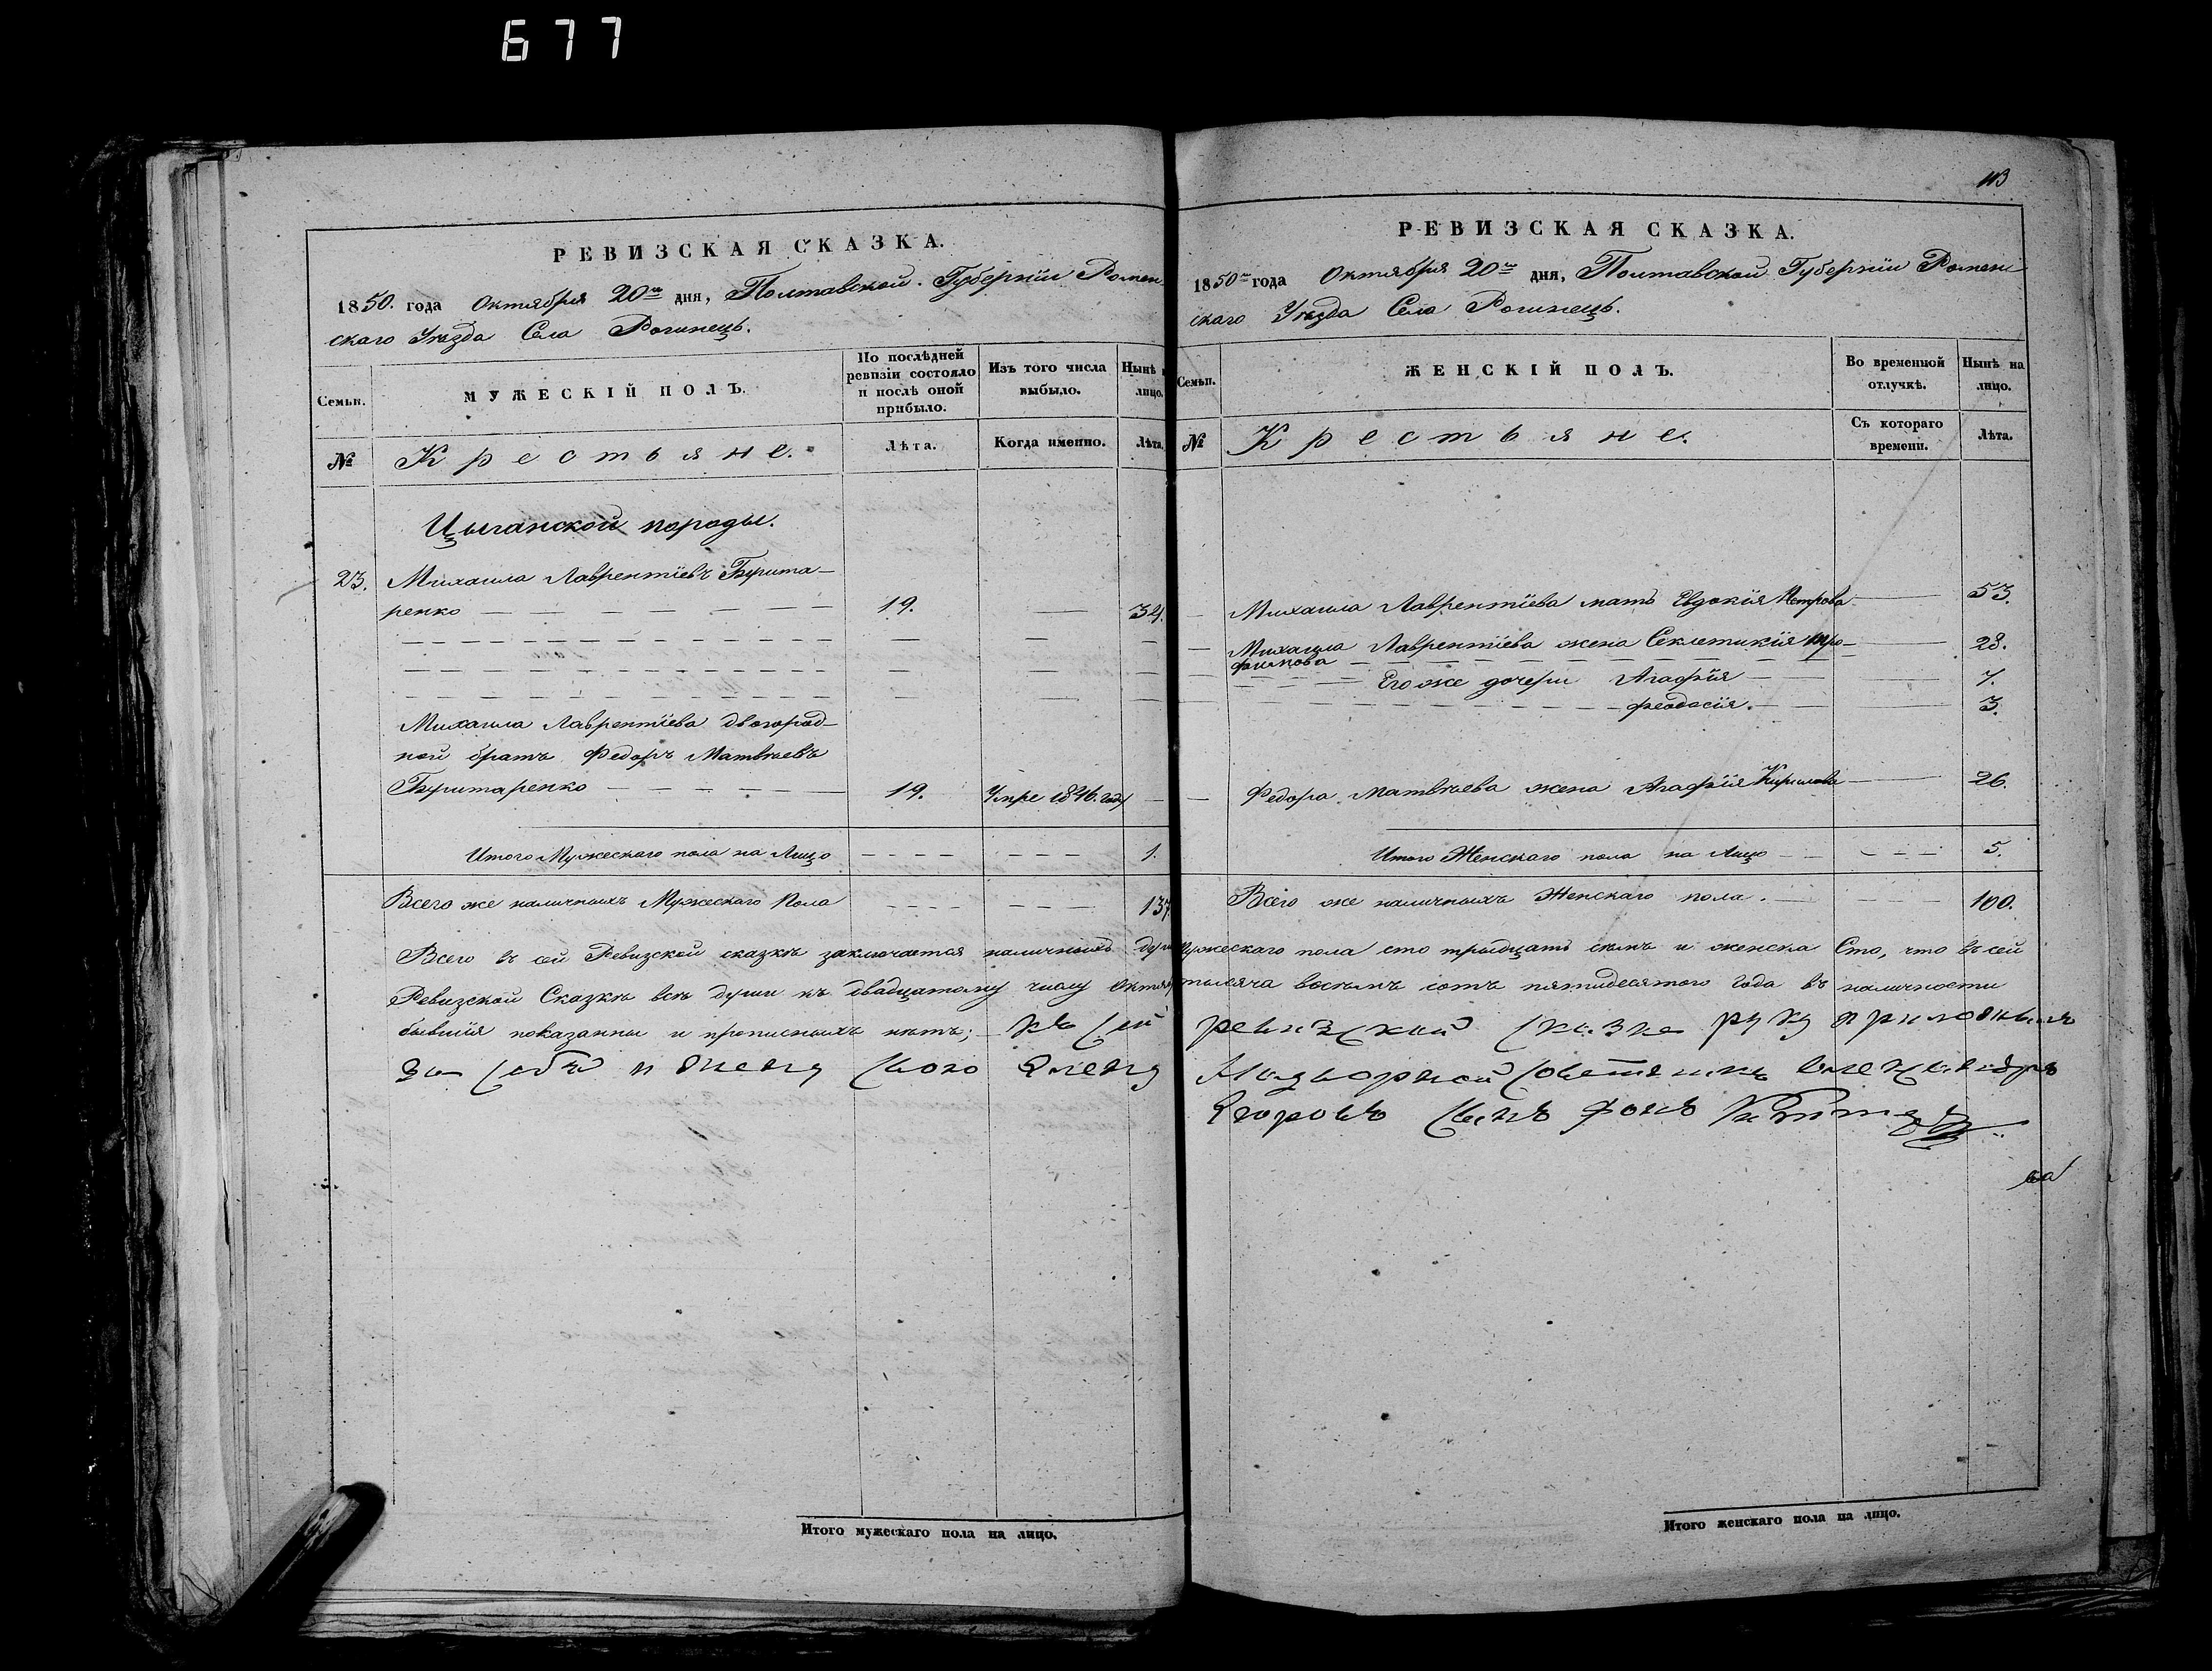 677
РЕВИЗСКАЯ СКАЗКА.
1850. года Октября 20го дня, Полтавской Губерніи Ромен
скаго Уѣзда Села Рогинецъ.
Семьи.
МУЖЕСКІЙ ПОЛЪ.
По послѣдней ревизіи состояло и послѣ оной прибыло.
Изъ того числа выбыло.
Нынѣ лицо.
№
Крестьяне.
Лѣта.
Когда именно.
Лѣта
Цыганской породы.
23. Михаила Лаврентіевъ
ренко 19. 34.
Михаила Лаврентіева двоюрод-
ной братъ Федоръ Матвѣевъ
19. Умре 1846. году
Итого Мужескаго пола на Лицо 1.
Всего же наличныхъ Мужескаго Пола 137.
Всего въ сей Ревизской сказкѣ заключается наличныхъ душ
Ревизской Сказкѣ всѣ души къ двадцатому числу Октяб
бывшія показанны и прописныхъ нѣтъ; къ сей
за себя и жену свою Елену
Итого мужескаго пола на лицо.
113
РЕВИЗСКАЯ СКАЗКА.
1850го года Октября 20го дня, Полтавской Губерніи Ромен
скаго Уѣзда Села Рогинецъ.
Семьи.
ЖЕНСКІЙ ПОЛЪ.
Во временной отлучкѣ.
Нынѣ на лицо.
№
Крестьяне.
Съ котораго времени.
Лѣта.
Михаила Лаврентіева мать Евдокія Петрова 53.
Михаила Лаврентіева жена Секлетикія Тро-
фимова 28.
Его же дочери Агафія 7.
Феодосія. 3.
Федора Матвѣева жена Агафія Кирилова 26.
Итого Женскаго пола на Лицо 5.
Всего же наличныхъ Женскаго пола. 100.
Мужескаго пола сто тридцать семь и женска Сто, что въ сей
тысяча восемь сотъ пятидесятого года въ наличности
ревизской сказке руку приложилъ
Надворной Советникъ Александръ
Егоровъ сынъ фонъ
Итого женскаго пола на лицо.